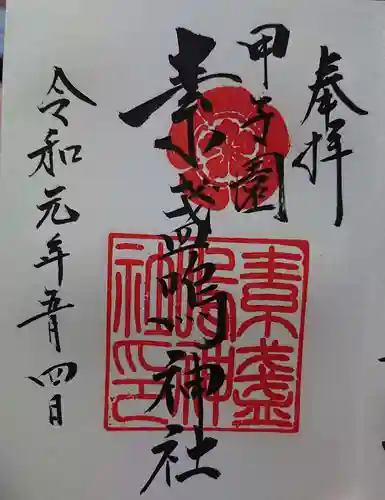 奉拝
甲子園
素盞嗚神社
素盞
嗚神
社印
令和元年五月四日